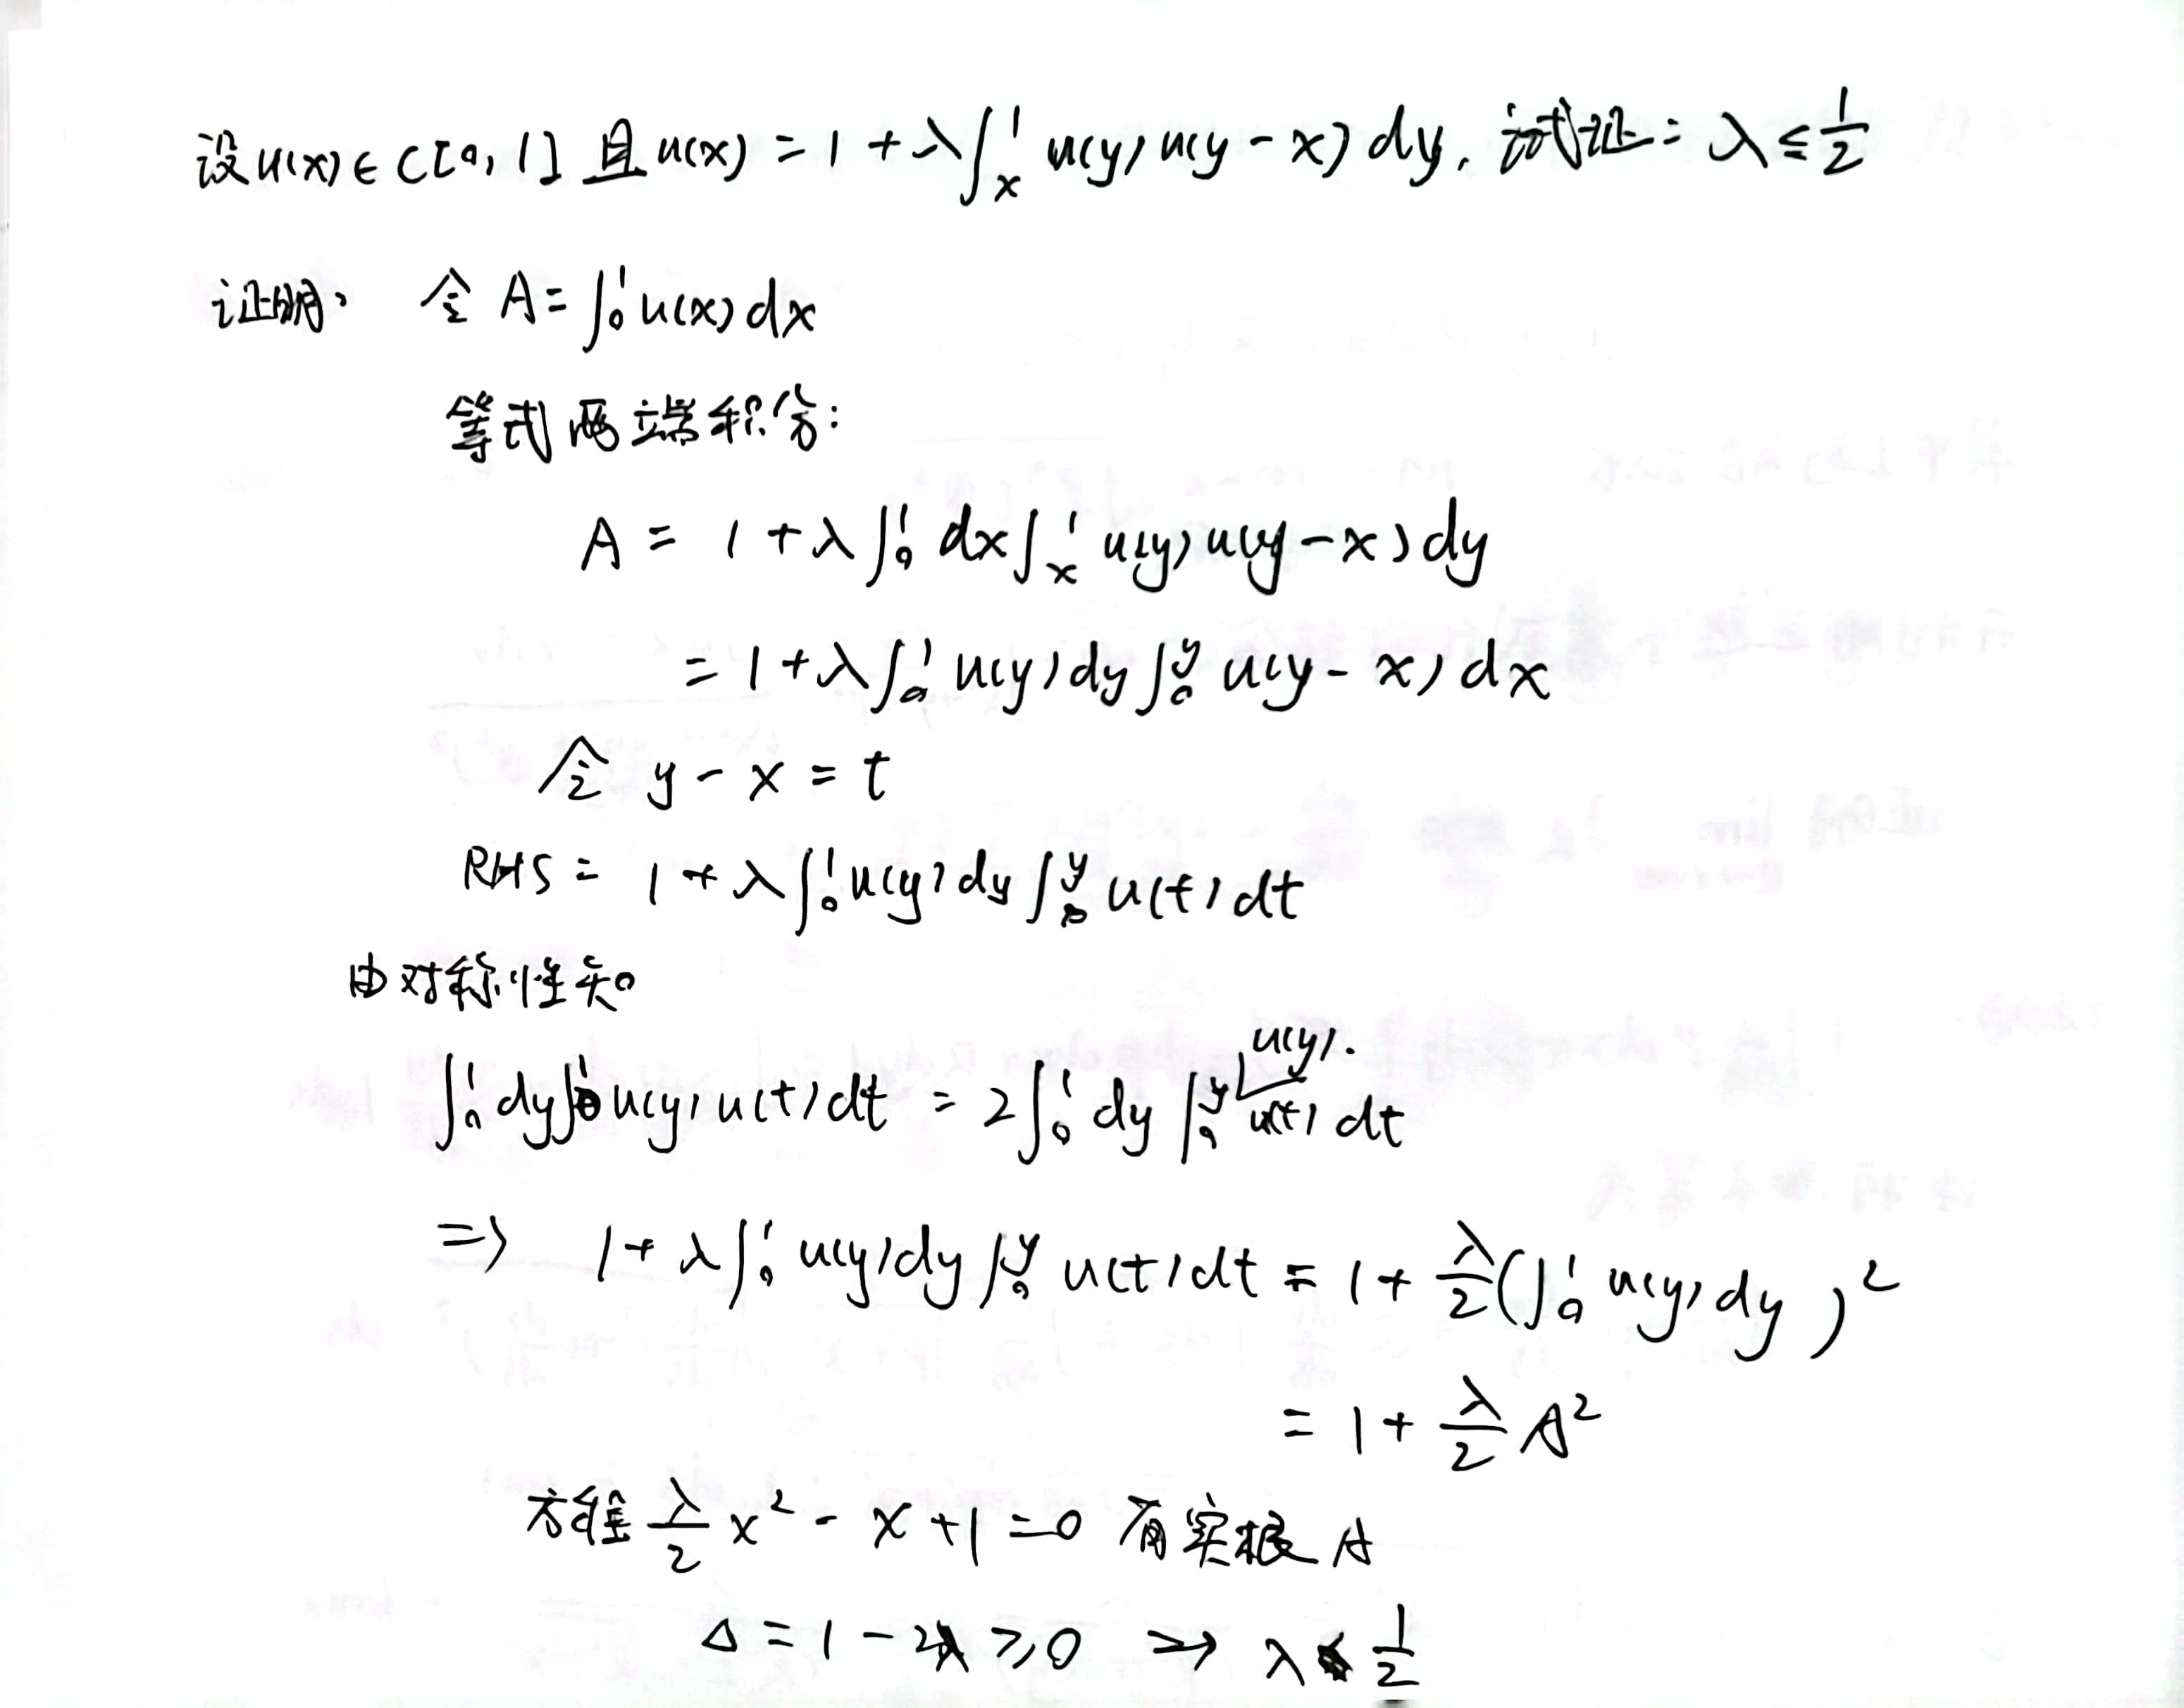 设u(x)∈C[0,1]且u(x)=1+λ∫_x^1 u(y)u(y-x)dy. 试证: λ≤1/2
证明: 令 A=∫_0^1 u(x)dx
等式两端积分:
A = 1+λ∫_0^1 dx∫_x^1 u(y)u(y-x)dy
= 1+λ∫_0^1 u(y)dy∫_0^y u(y-x)dx
令 y-x=t
RHS = 1+λ∫_0^1 u(y)dy∫_0^y u(t)dt
由对称性知
∫_0^1 dy∫_0^1 u(y)u(t)dt = 2∫_0^1 dy∫_0^y u(y)·u(t)dt
=> 1+λ∫_0^1 u(y)dy∫_0^y u(t)dt = 1+λ/2(∫_0^1 u(y)dy)^2
= 1+λ/2 A^2
方程 λ/2 x^2-x+1=0 有实根 A
Δ=1-2λ≥0 => λ≤1/2